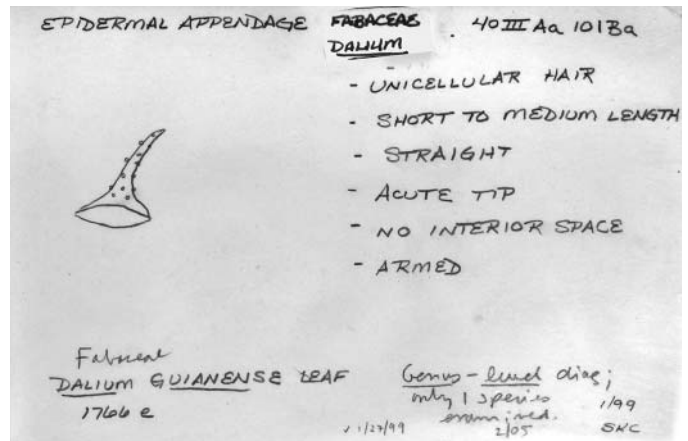 EPIDERMAL APPENDAGE FABACEAE . 40 III Aa 101 Ba
DALIUM
- UNICELLULAR HAIR
- SHORT TO MEDIUM LENGTH
- STRAIGHT
- ACUTE TIP
- NO INTERIOR SPACE
- ARMED
Fabaceae
DALIUM GUIANENSE LEAF
1766 e
Genus - level diag;
only 1 species
examined. 1/99
√ 1/27/99 2/05 SKC